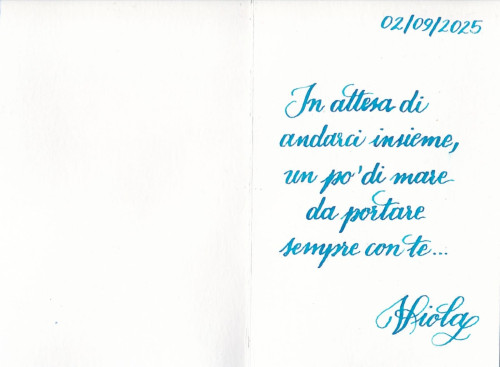 02/09/2025
In attesa di
andarci insieme,
un po' di mare
da portare
sempre con te...
Viola